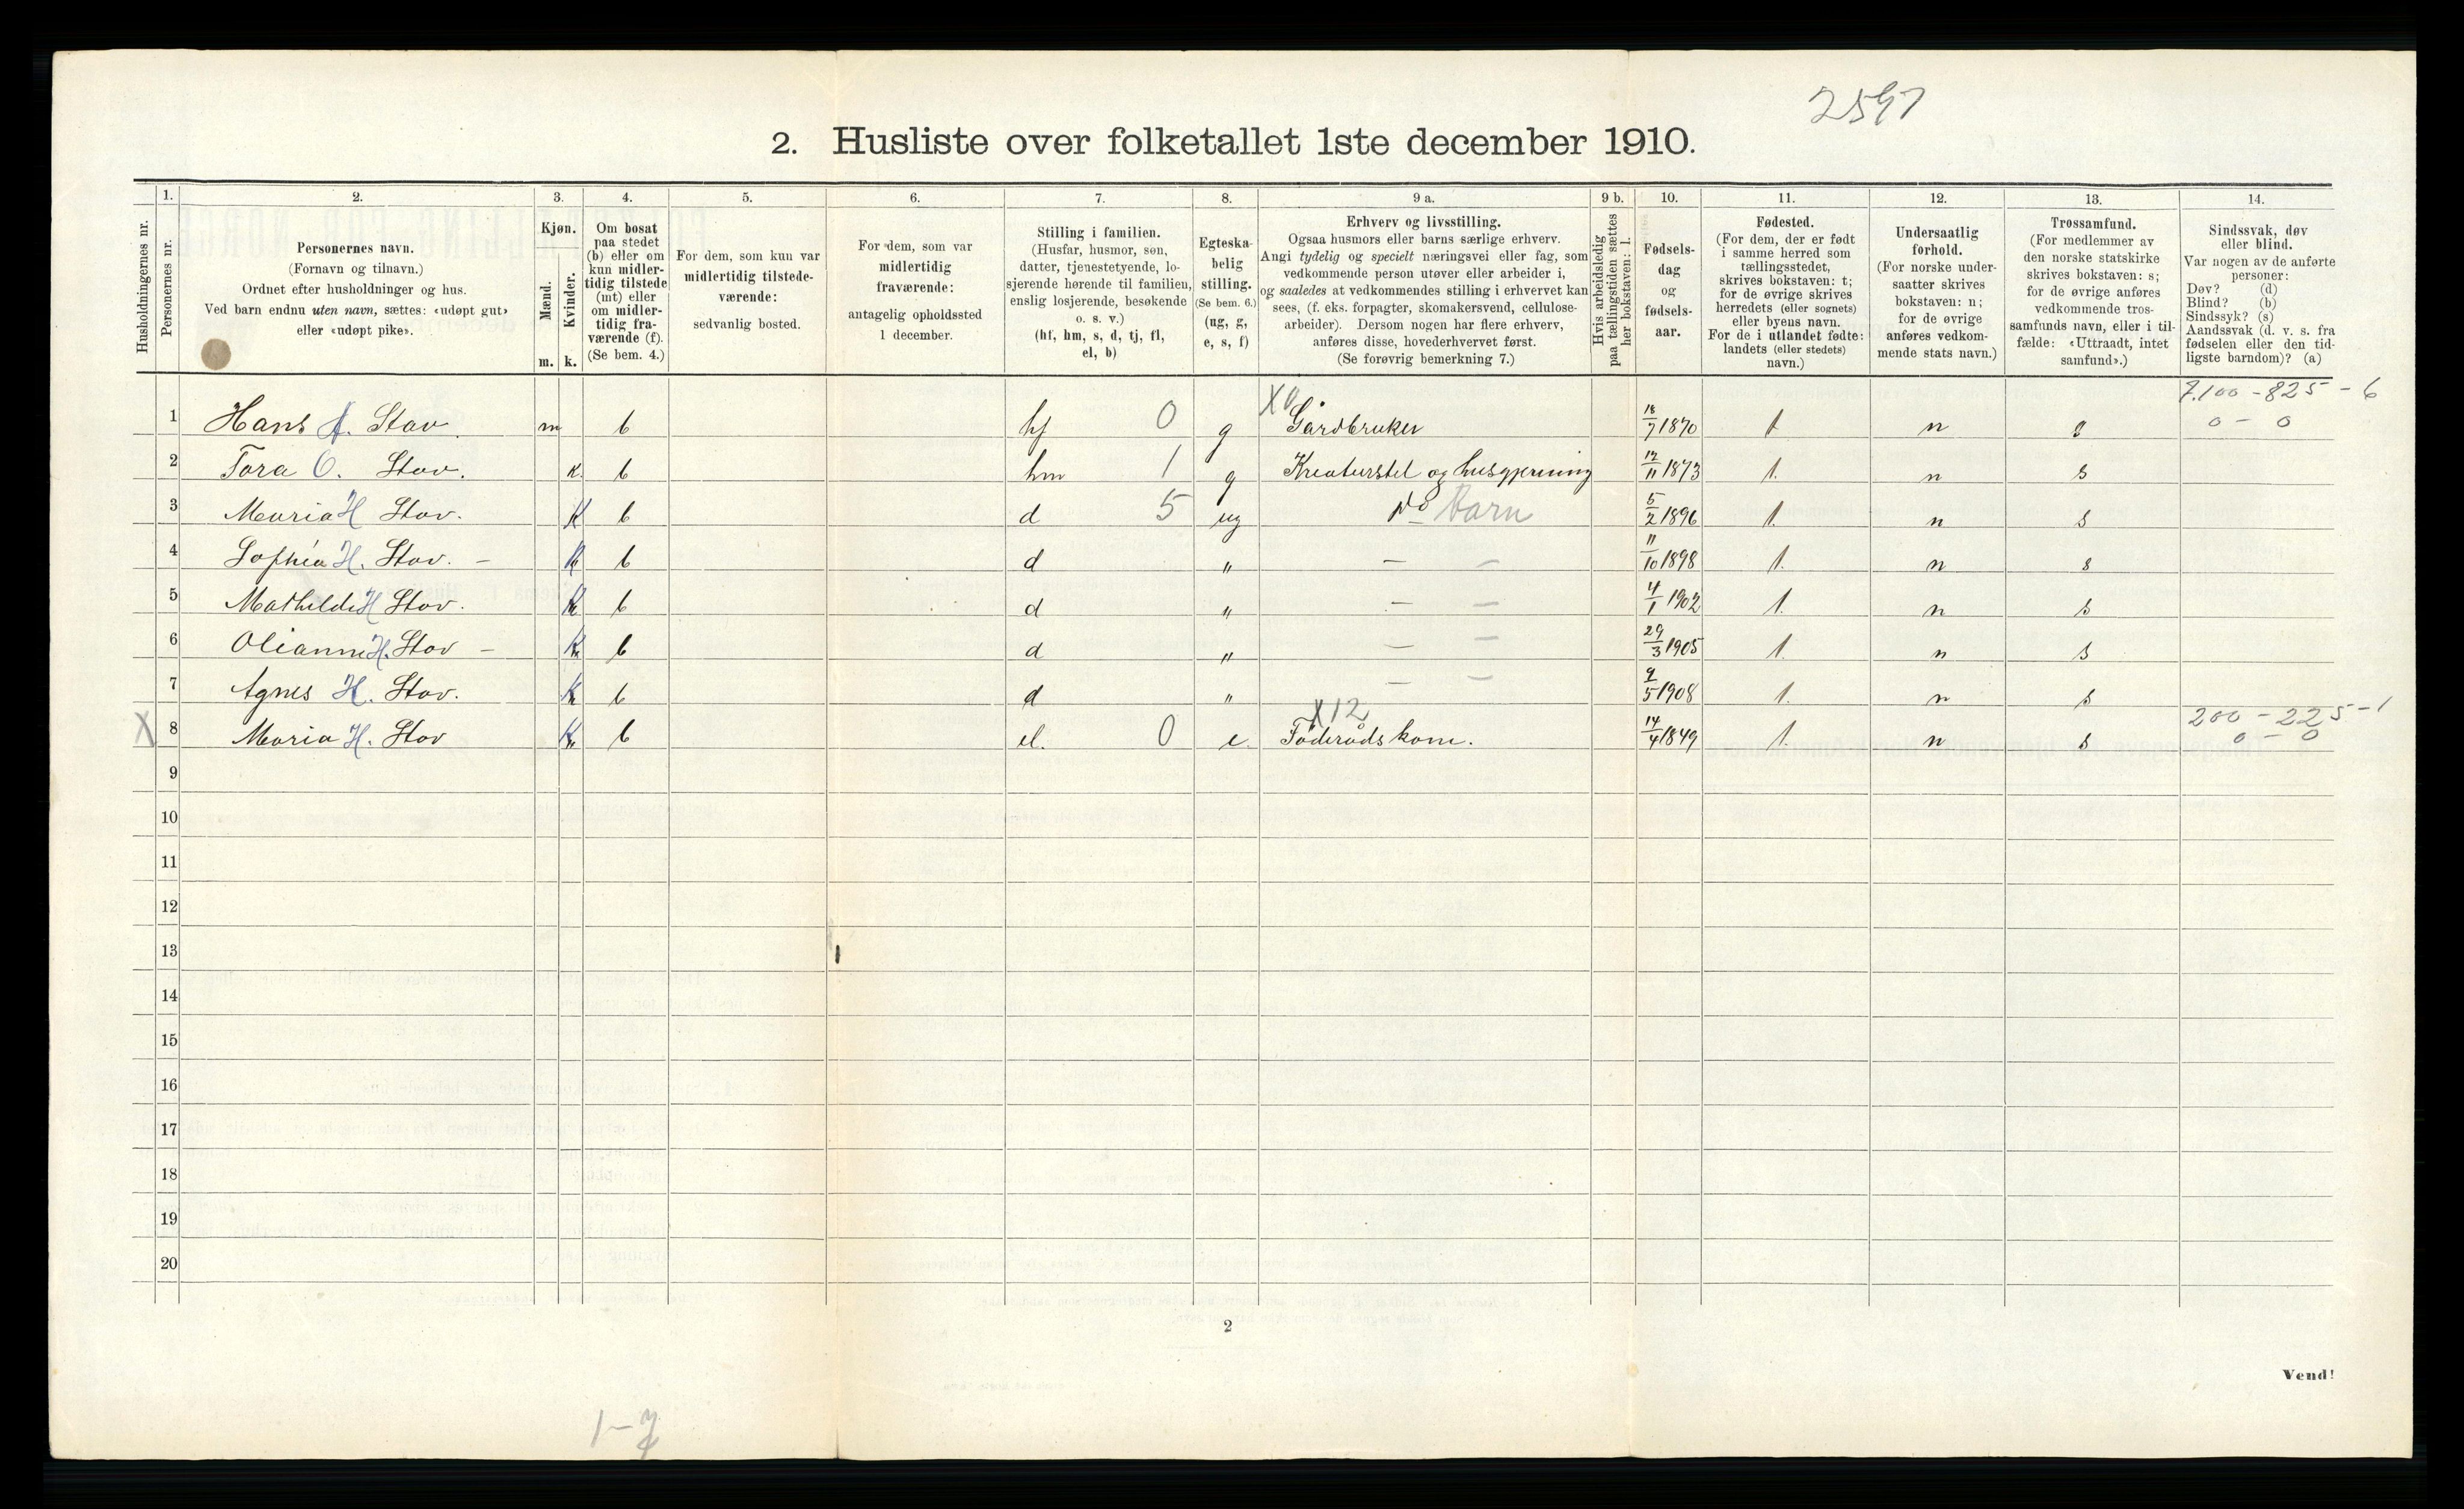 2597
2. Husliste over folketallet 1ste december 1910.
Husholdningernes nr.
1.
Personernes nr.
2.
Personernes navn.
(Fornavn og tilnavn.)
Ordnet efter husholdninger og hus.
Ved barn endnu uten navn, sættes: «udøpt gut»
eller «udøpt pike».
3.
Kjøn.
Mænd.
Kvinder.
m. k.
4.
Om bosat
paa stedet
(b) eller om
kun midler-
tidig tilstede
(mt) eller
om midler-
tidig fra-
værende (f).
(Se bem. 4.)
5.
For dem, som kun var
midlertidig tilstede-
værende:
sedvanlig bosted.
6.
For dem, som var
midlertidig
fraværende:
antagelig opholdssted
1 december.
7.
Stilling i familien.
(Husfar, husmor, søn,
datter, tjenestetyende, lo-
sjerende hørende til familien,
enslig losjerende, besøkende
o. s. v.)
(hf, hm, s, d, tj, fl,
el, b)
8.
Egteska-
belig
stilling.
(Se bem. 6.)
(ug, g,
e, s, f)
9 a.
Erhverv og livsstilling.
Ogsaa husmors eller barns særlige erhverv.
Angi tydelig og specielt næringsvei eller fag, som
vedkommende person utøver eller arbeider i,
og saaledes at vedkommendes stilling i erhvervet kan
sees, (f. eks. forpagter, skomakersvend, cellulose-
arbeider). Dersom nogen har flere erhverv,
anføres disse, hovederhvervet først.
(Se forøvrig bemerkning 7.)
9 b.
Hvis arbeidsledig
paa tællingstiden sættes
her bokstaven: l.
10.
Fødsels-
dag
og
fødsels-
aar.
11.
Fødested.
(For dem, der er født
i samme herred som
tællingsstedet,
skrives bokstaven: t;
for de øvrige skrives
herredets (eller sognets)
eller byens navn.
For de i utlandet fødte:
landets (eller stedets)
navn.)
12.
Undersaatlig
forhold.
(For norske under-
saatter skrives
bokstaven: n;
for de øvrige
anføres vedkom-
mende stats navn.)
13.
Trossamfund.
(For medlemmer av
den norske statskirke
skrives bokstaven: s;
for de øvrige anføres
vedkommende tros-
samfunds navn, eller i til-
fælde: «Uttraadt, intet
samfund».)
14.
Sindssvak, døv
eller blind.
Var nogen av de anførte
personer:
Døv? (d)
Blind? (b)
Sindssyk? (s)
Aandssvak (d. v. s. fra
fødselen eller den tid-
ligste barndom)? (a)
7.100 - 825 - 6
1 Hans A. Stav m b hf 0 g X0 Gårdbruker 18/7 1870 t n s 0 - 0
2 Tora O. Stav. k. b hm 1 g Kreaturstel og husgjerning 12/11 1873 t. n s
3 Maria H Stav. K b d 5 ug Do Barn 5/2 1896 t. n s
4 Sophia H. Stav. - K b d " — — 11/10 1898 t. n s
5 Mathilde H Stav. K b d " — — 4/1 1902 t. n s
6 Olianne H. Stav - K b d " — — 29/3 1905 t. n s
7 Agnes H. Stav. K b d " — — 2/5 1908 t. n s
X12 200 - 225 - 1
X 8 Maria H. Stav K b el. 0 e. Föderådskone. 14/4 1849 t. n s 0 - 0
9
10
11
12
13
14
15
16
17
18
19
20
2
Vend!